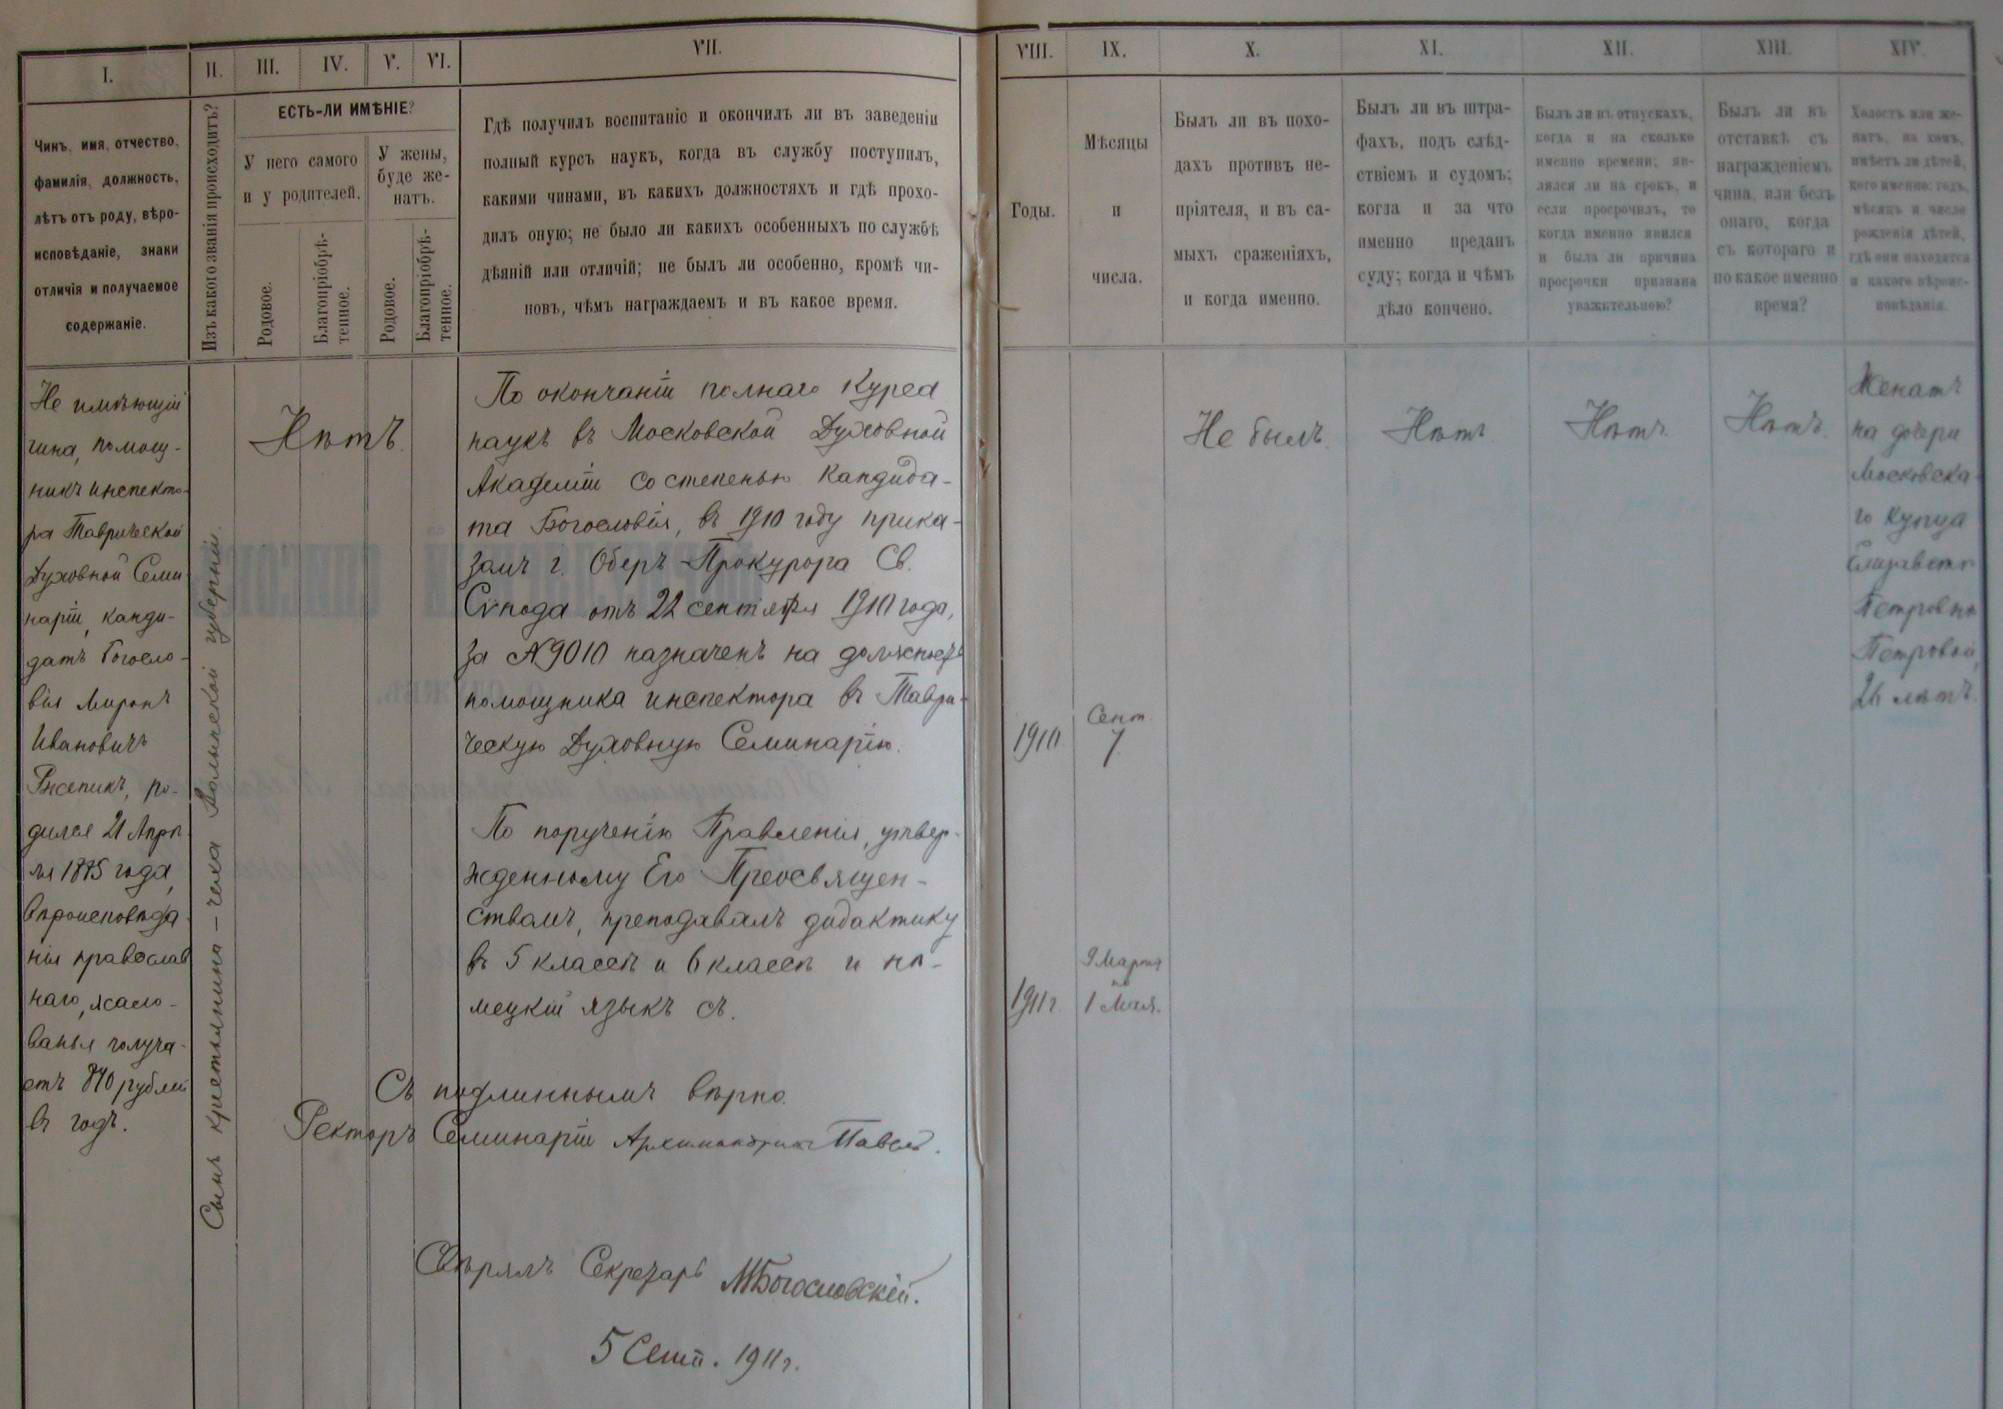 I.
II.
III.
IV.
V.
VI.
VII.
VIII.
IX.
X.
XI.
XII.
XIII.
XIV.
Чинъ, имя, отчество,
фамилія, должность,
лѣтъ отъ роду, вѣро-
исповѣданіе, знаки
отличія и получаемое
содержаніе.
Изъ какого званія происходитъ?
ЕСТЬ-ЛИ ИМѢНІЕ?
У него самого
и у родителей.
У жены,
буде же-
натъ.
Родовое.
Благопріобрѣ-
тенное.
Родовое.
Благопріобрѣ-
тенное.
Гдѣ получилъ воспитаніе и окончилъ ли въ заведеніи
полный курсъ наукъ, когда въ службу поступилъ,
какими чинами, въ какихъ должностяхъ и гдѣ прохо-
дилъ оную; не было ли какихъ особенныхъ по службѣ
дѣяній или отличій; не былъ ли особенно, кромѣ чи-
новъ, чѣмъ награждаемъ и въ какое время.
Годы.
Мѣсяцы
и
числа.
Былъ ли въ похо-
дахъ противъ не-
пріятеля, и въ са-
мыхъ сраженіяхъ,
и когда именно.
Былъ ли въ штра-
фахъ, подъ слѣд-
ствіемъ и судомъ;
когда и за что
именно преданъ
суду; когда и чѣмъ
дѣло кончено.
Былъ ли въ отпускахъ,
когда и на сколько
именно времени; яв-
лялся ли на срокъ, и
если просрочилъ, то
когда именно явился
и была ли причина
просрочки признана
уважительною?
Былъ ли въ
отставкѣ съ
награжденіемъ
чина, или безъ
онаго, когда
съ котораго и
по какое именно
время?
Холостъ или же-
натъ, на комъ,
имѣетъ ли дѣтей,
кого именно; годъ,
мѣсяцъ и число
рожденія дѣтей,
гдѣ они находятся
и какого вѣроис-
повѣданія.
Не имѣющій
чина, помощ-
никъ инспекто-
ра Таврической
Духовной Семи
наріи, канди-
датъ богосло-
вія Миронъ
Ивановичъ
ро-
дился 21 Апрѣ
ля 1875 года,
вѣроисповѣда
нія православ
наго, жало-
ванья получа-
етъ 870 рублей
въ годъ.
Сынъ крестьянина - чеха Волынской губерніи.
Нѣтъ.
По окончаніи полнаго курса
наукъ въ Московской Духовной
Академіи со степенью кандида-
та Богословія, въ 1910 году прика-
зомъ г. Оберъ-Прокурора Св.
Сѵнода отъ 22 сентября 1910 года,
за №9010 назначенъ на должность
помощника инспектора въ Таври-
ческую Духовную Семинарію.
1910
Сент.
7
По порученію Правленія, утвер-
жденному Его Преосвящен-
ствомъ, преподавалъ дидактику
въ 5 классѣ и 6 классѣ и нѣ-
мецкій языкъ съ.
1911 г.
9 Марта
по
1 Мая.
Не былъ.
Нѣтъ.
Нѣтъ.
Нѣтъ.
Женатъ
на дочери
Московска-
го купца
Елизаветѣ
Петровнѣ
Петровой,
26 лѣтъ.
Съ подлиннымъ вѣрно.
Ректоръ Семинаріи Архимандритъ Павелъ.
Свѣрялъ Секретарь М Богословскій.
5 Сент. 1911 г.